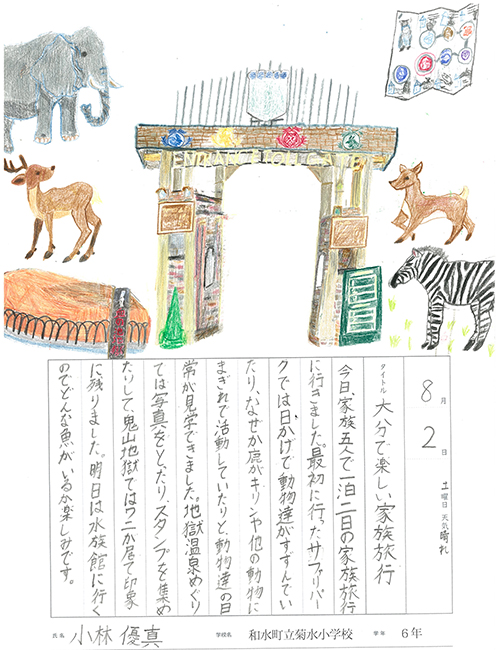 8月
2日
土曜日 天気 晴れ
タイトル 大分で楽しい家族旅行
今日、家族五人で一泊二日の家族旅行
に行きました。最初に行ったサファリパー
クでは日かげで動物達がすずんでい
たり、なぜか鹿がキリンや他の動物に
まぎれて活動していたりと、動物達の日
常が見学できました。地獄温泉めぐり
では写真をとったり、スタンプを集め
たりして、鬼山地獄ではワニが居て印象
に残りました。明日は水族館に行く
のでどんな魚がいるか楽しみです。
氏名 小林 優真 学校名 和水町立菊水小学校 学年 6年